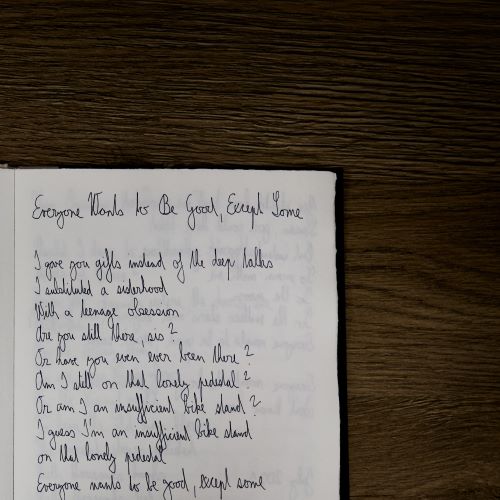 Everyone Wants to Be Good, Except Some
I gave you gifts instead of the deep talks
I substituted a sisterhood
With a teenage obsession
Are you still there, sis?
Or have you even ever been there?
Am I still on that lonely pedestal?
Or am I an insufficient bike stand?
I guess I'm an insufficient bike stand
on that lonely pedestal
Everyone wants to be good, except some